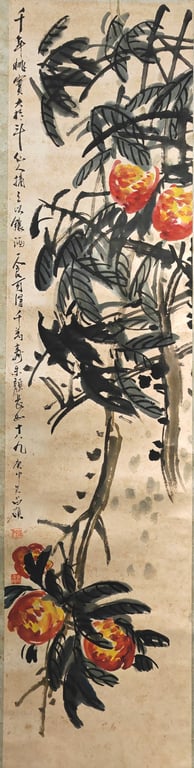 千年桃實大於斗仙人摘之以釀酒一食可得千萬壽朱顏長如十八九庚申